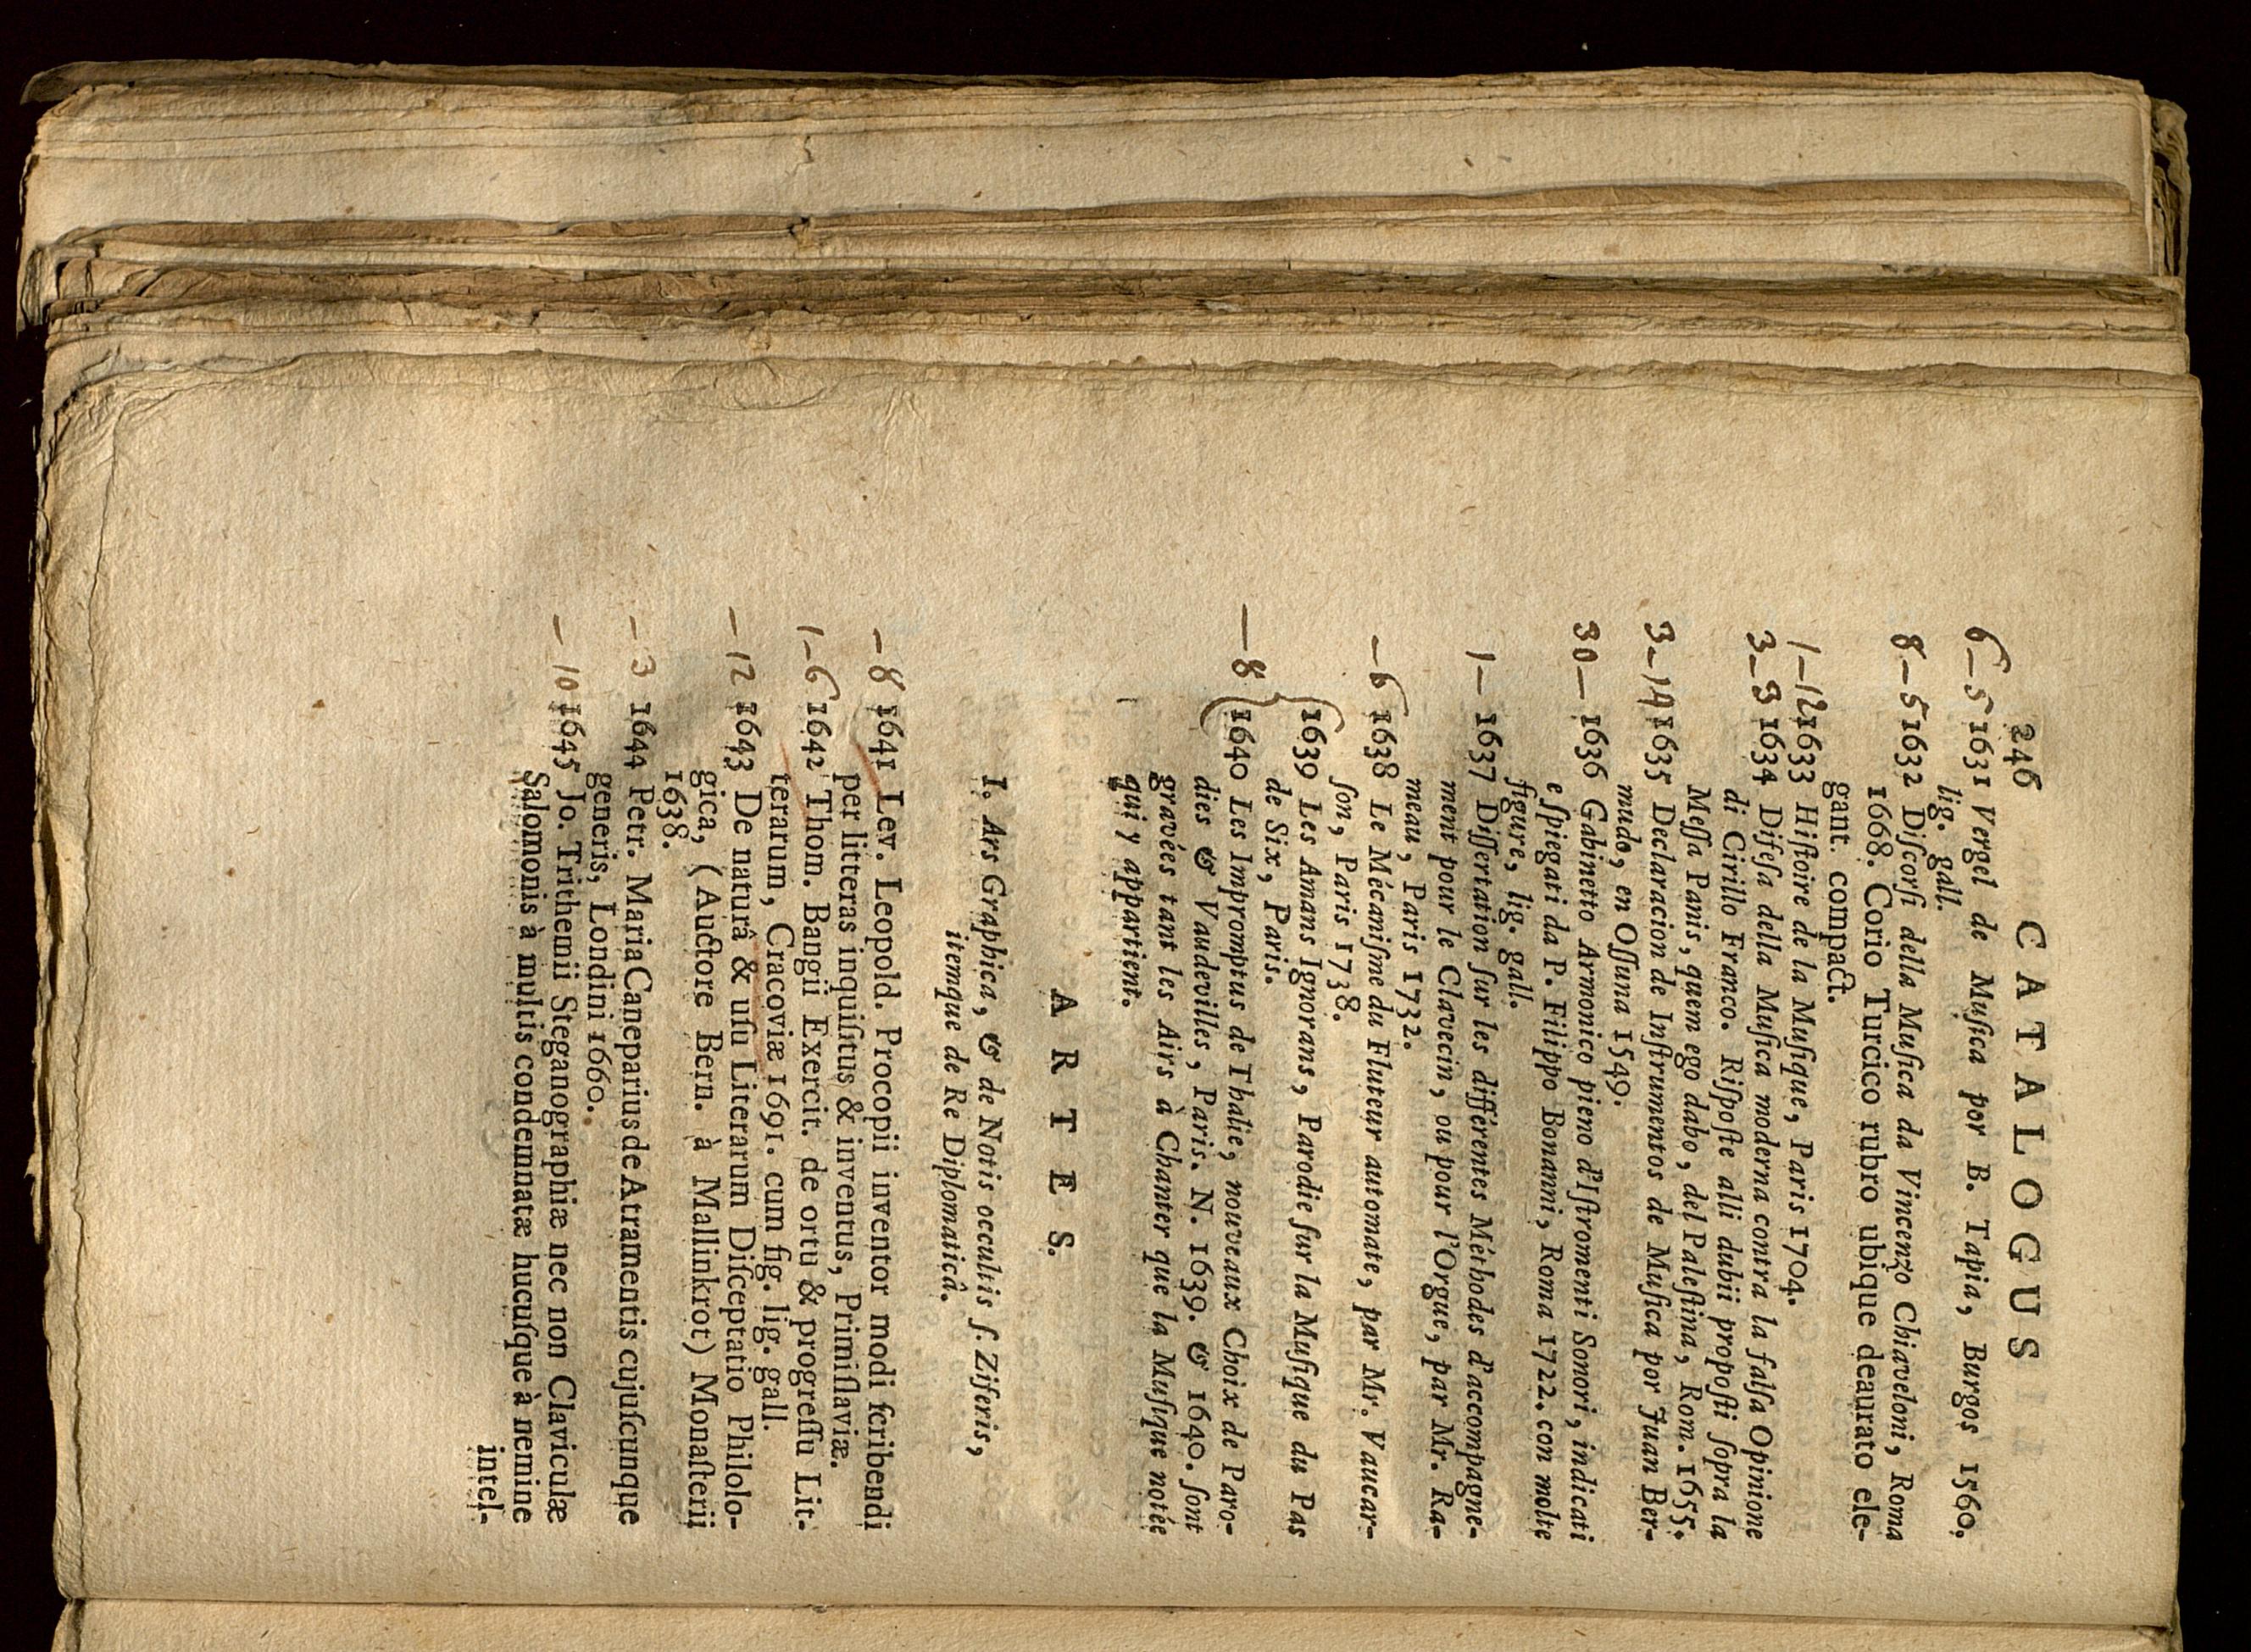 246 CATALOGUS
6—5 1631 Vergel de Muſica por B. Tapia, Burgos 1560,
lig. gall.
8—5 1632 Diſcorſi della Muſica da Vincenzo Chiaveloni, Roma
1668. Corio Turcico rubro ubique deaurato ele-
gant. compact.
1—12 1633 Hiſtoire de la Muſique, Paris 1704.
3—3 1634 Difeſa della Muſica moderna contra la falſa Opinione
di Cirillo Franco. Riſpoſte alli dubii propoſti ſopra la
Meſſa Panis, quem ego dabo, del Paleſtina, Rom. 1655.
3—19 1635 Declaracion de Inſtrumentos de Muſica por Juan Ber-
mudo, en Oſſuna 1549.
30— 1636 Gabinetto Armonico pieno d'Iſtromenti Sonori, indicati
e ſpiegati da P. Filippo Bonanni, Roma 1722. con molte
figure, lig. gall.
1— 1637 Diſſertation ſur les différentes Méthodes d'accompagne-
ment pour le Clavecin, ou pour l'Orgue, par Mr. Ra-
meau, Paris 1732.
—6 1638 Le Mécaniſme du Fluteur automate, par Mr. Vaucar-
ſon, Paris 1738.
1639 Les Amans Ignorans, Parodie ſur la Muſique du Pas
de Six, Paris.
—8 1640 Les Impromptus de Thalie, nouveaux Choix de Paro-
dies & Vaudevilles, Paris. N. 1639. & 1640. ſont
gravées tant les Airs à Chanter que la Muſique notée
qui y appartient.
ARTES.
I. Ars Graphica, & de Notis occultis ſ. Ziferis,
itemque de Re Diplomaticâ.
—8 1641 Lev. Leopold. Procopii inventor modi ſcribendi
per litteras inquiſitus & inventus, Primiſlaviæ.
1—6 1642 Thom. Bangii Exercit. de ortu & progreſſu Lit-
terarum, Cracoviæ 1691. cum fig. lig. gall.
—12 1643 De naturâ & uſu Literarum Diſceptatio Philolo-
gica, (Auctore Bern. à Mallinkrot) Monaſterii
1638.
—3 1644 Petr. Maria Caneparius de Atramentis cujuſcunque
generis, Londini 1660.
—10 1645 Jo. Trithemii Steganographiæ nec non Claviculæ
Salomonis à multis condemnatæ hucuſque à nemine
intel-